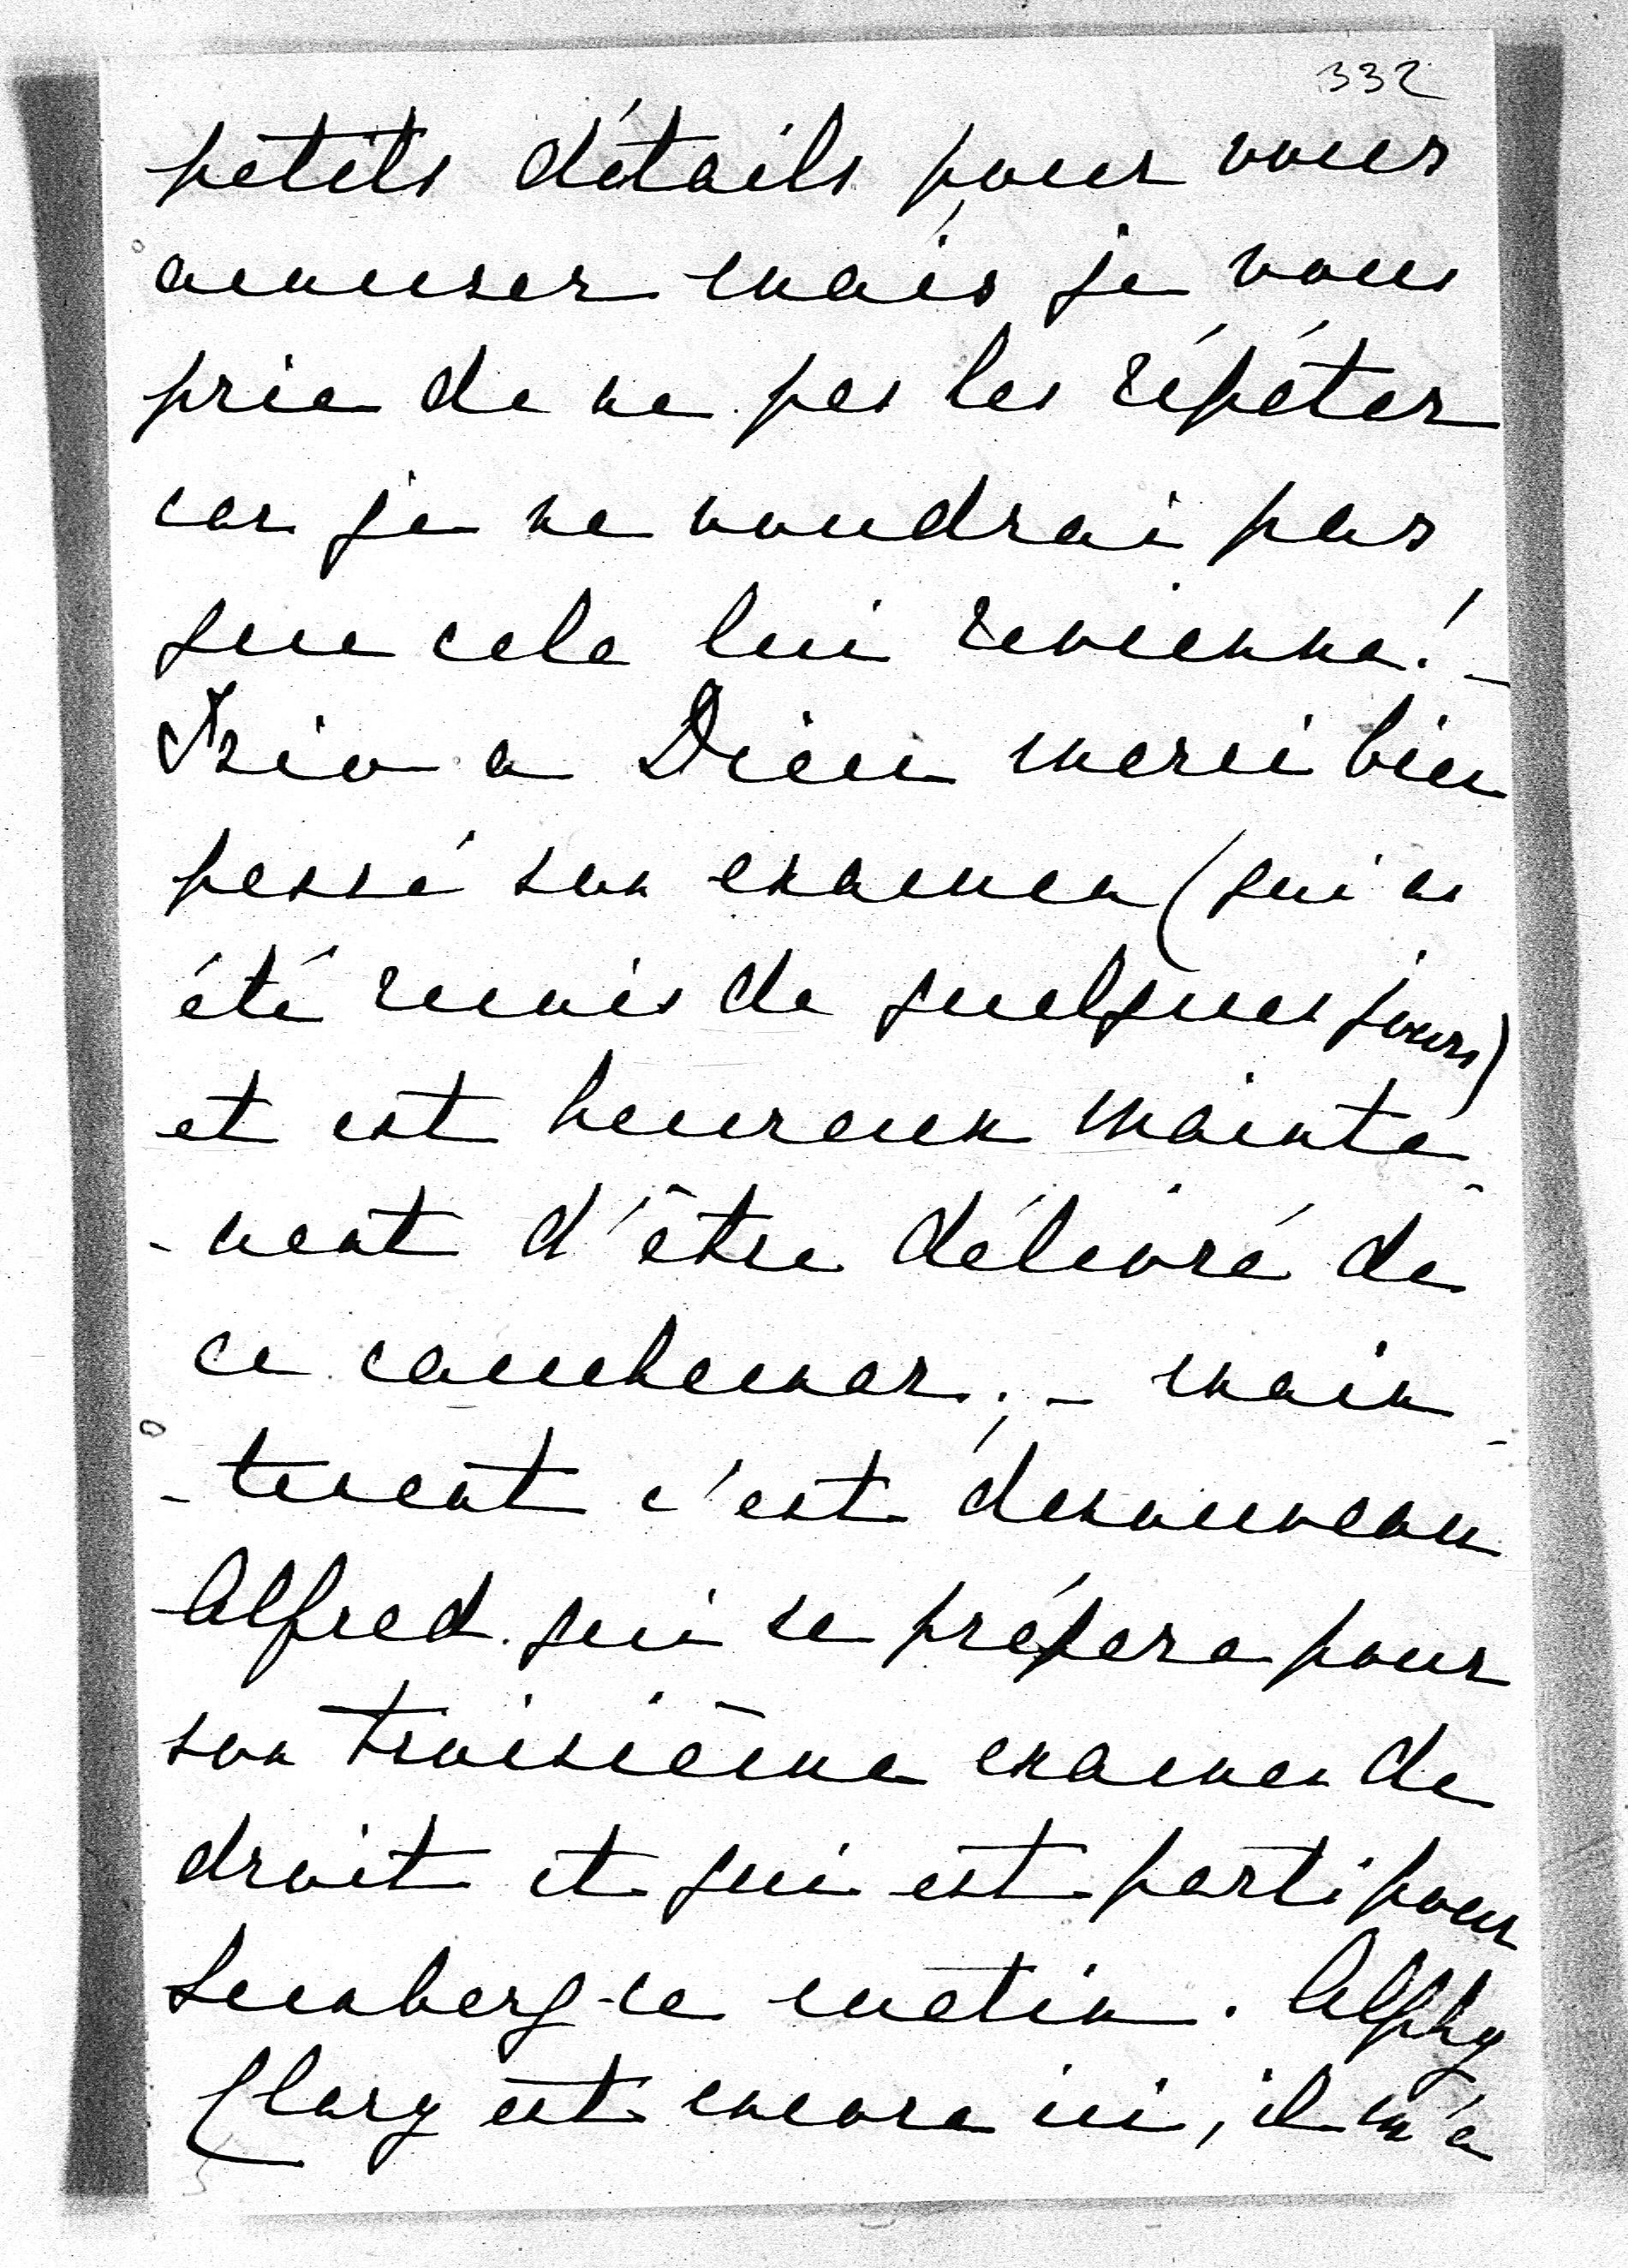 332
petits détails pour vous
amuser mais je vous
prie de ne pas les répéter
car je ne voudrai pas
que cela lui revienne! -
a Dieu merci bien
passé son examen (qui a
été remis de quelques jours)
et est heureux mainte-
-nant d'être délivré de
ce cauchemar; - main-
-tenant c'est denouveau
Alfred qui se prépare pour
son troisième examen de
droit et qui est parti pour
ce matin. Alphy
Clary est encore ici, il m'a